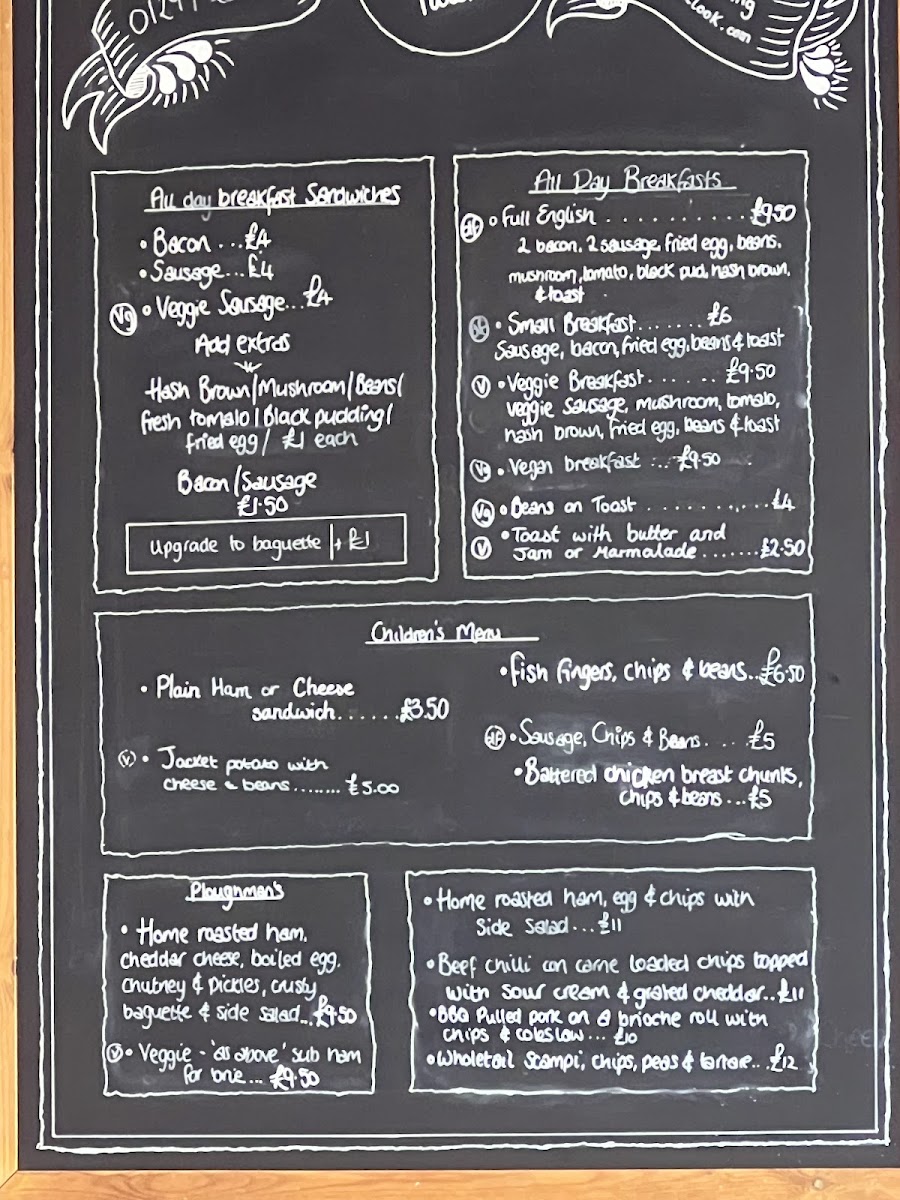 look.com
All day breakfast Sandwiches
• Bacon ... £4
• Sausage... £4
Vg • Veggie Sausage... £4
Add extras
Hash Brown/Mushroom/Beans/
fresh tomato/Black pudding/
fried egg/ £1 each
Bacon/Sausage
£1.50
upgrade to baguette |+ £1
All Day Breakfasts
• Full English ........... £9.50
2 bacon, 2 sausage, fried egg, beans,
mushroom, tomato, black pud, hash brown,
& toast
• Small Breakfast....... £6
Sausage, bacon, fried egg, beans & toast
V • Veggie Breakfast...... £9.50
veggie sausage, mushroom, tomato,
hash brown, fried egg, beans & toast
Vg • Vegan breakfast ... £9.50
Vg • Beans on Toast ............ £4
V • Toast with butter and
Jam or Marmalade ....... £2.50
Children's Menu
• Plain Ham or Cheese
sandwich...... £3.50
V • Jacket potato with
cheese & beans........ £5.00
• Fish fingers, chips & beans.. £6.50
GF • Sausage, Chips & Beans.... £5
• Battered chicken breast chunks,
chips & beans ... £5
Ploughman's
• Home roasted ham,
cheddar cheese, boiled egg,
chutney & pickles, crusty
baguette & side salad... £9.50
V • Veggie - 'as above' sub ham
for brie... £9.50
• Home roasted ham, egg & chips with
Side Salad... £11
• Beef chilli con carne loaded chips topped
with sour cream & grated cheddar.. £11
• BBQ Pulled pork on a brioche roll with
chips & coleslaw... £10
• Wholetail Scampi, chips, peas & tartare... £12